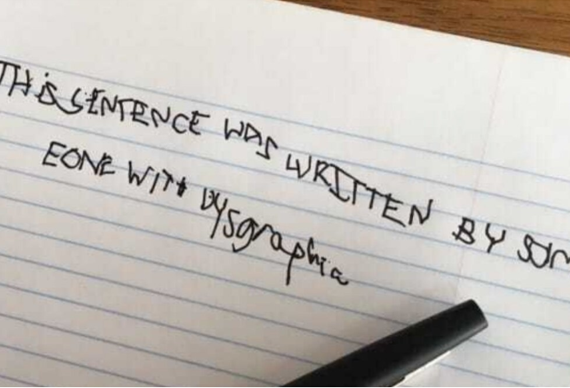 THiS SENTENCE WAS WRITTEN BY SOM
EONE WITH DYsgraphia